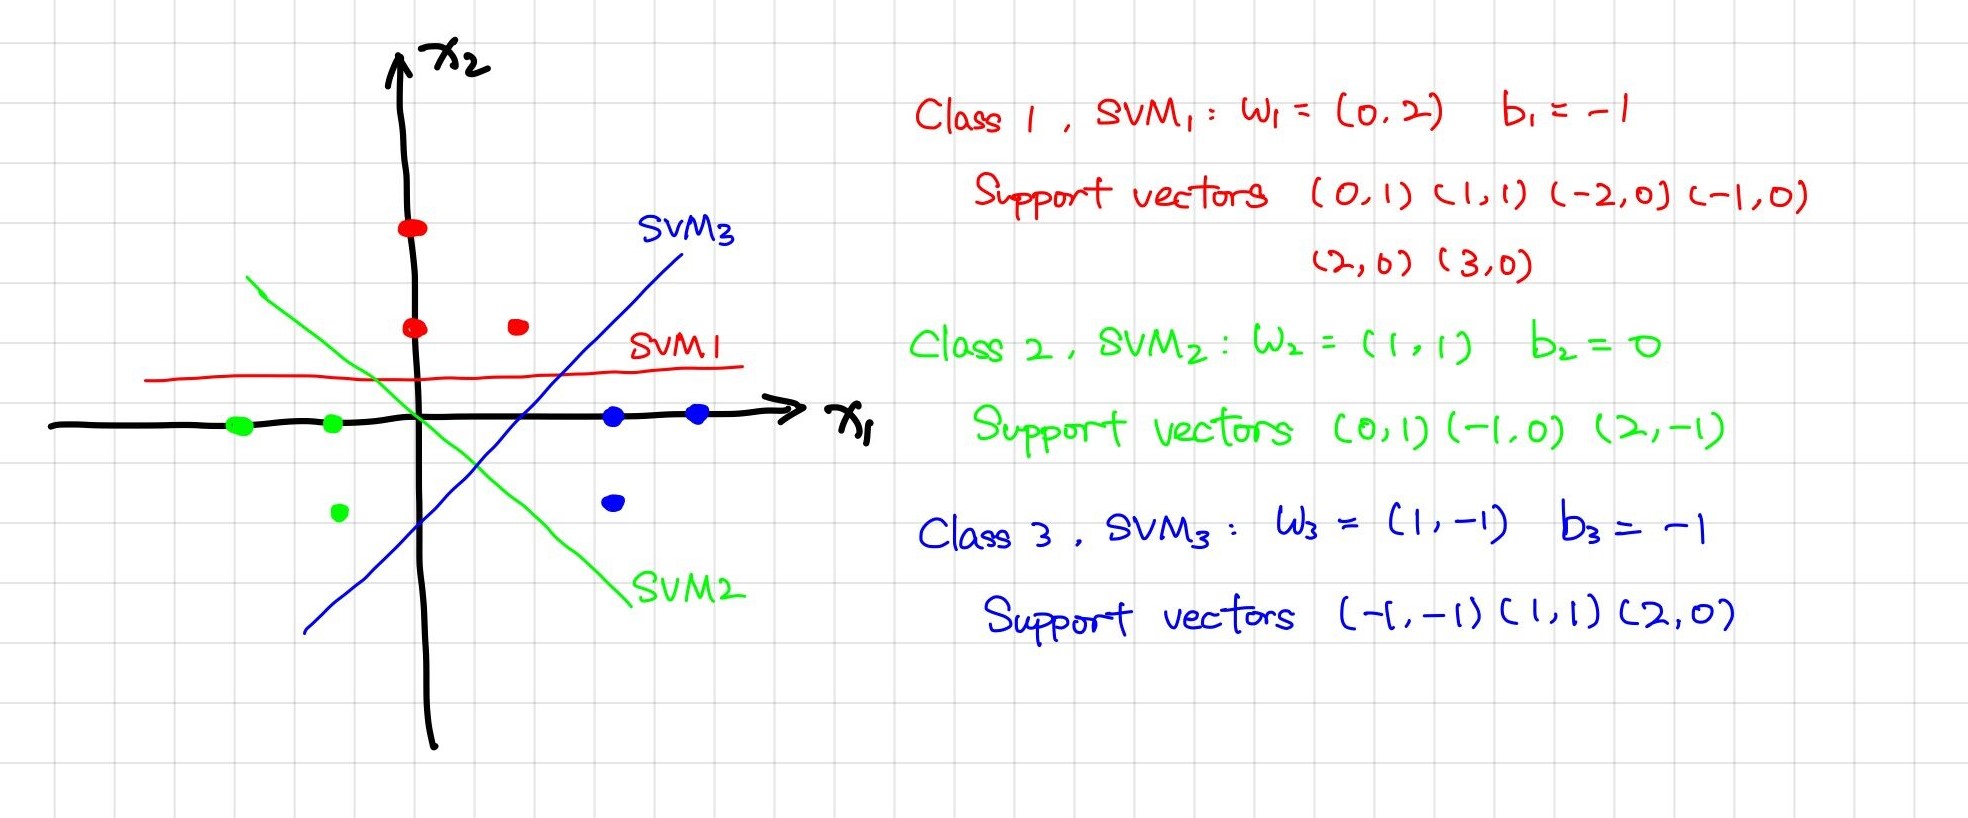 x₂
SVM₃
SVM1
x₁
SVM2
Class 1, SVM₁: W₁ = (0.2) b₁ = -1
Support vectors (0,1) (1,1) (-2,0] (-1,0)
(2,0) (3,0)
Class 2, SVM₂: W₂ = (1,1) b₂ = 0
Support vectors (0,1) (-1,0) (2,-1)
Class 3, SVM₃: W₃ = (1,-1) b₃ = -1
Support vectors (-1,-1) (1,1) (2,0)